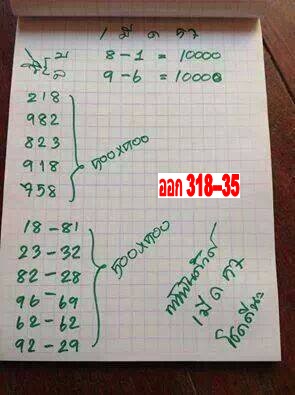 1 มี ค 57
บ 8-1 = 10000
ล 9-6 = 10000
218
982
823
918
758
500x500
ออก 318-35
18-81
23-32
82-28
96-69
62-62
92-29
500x500
1 มี ค 57
โชคดีนะ